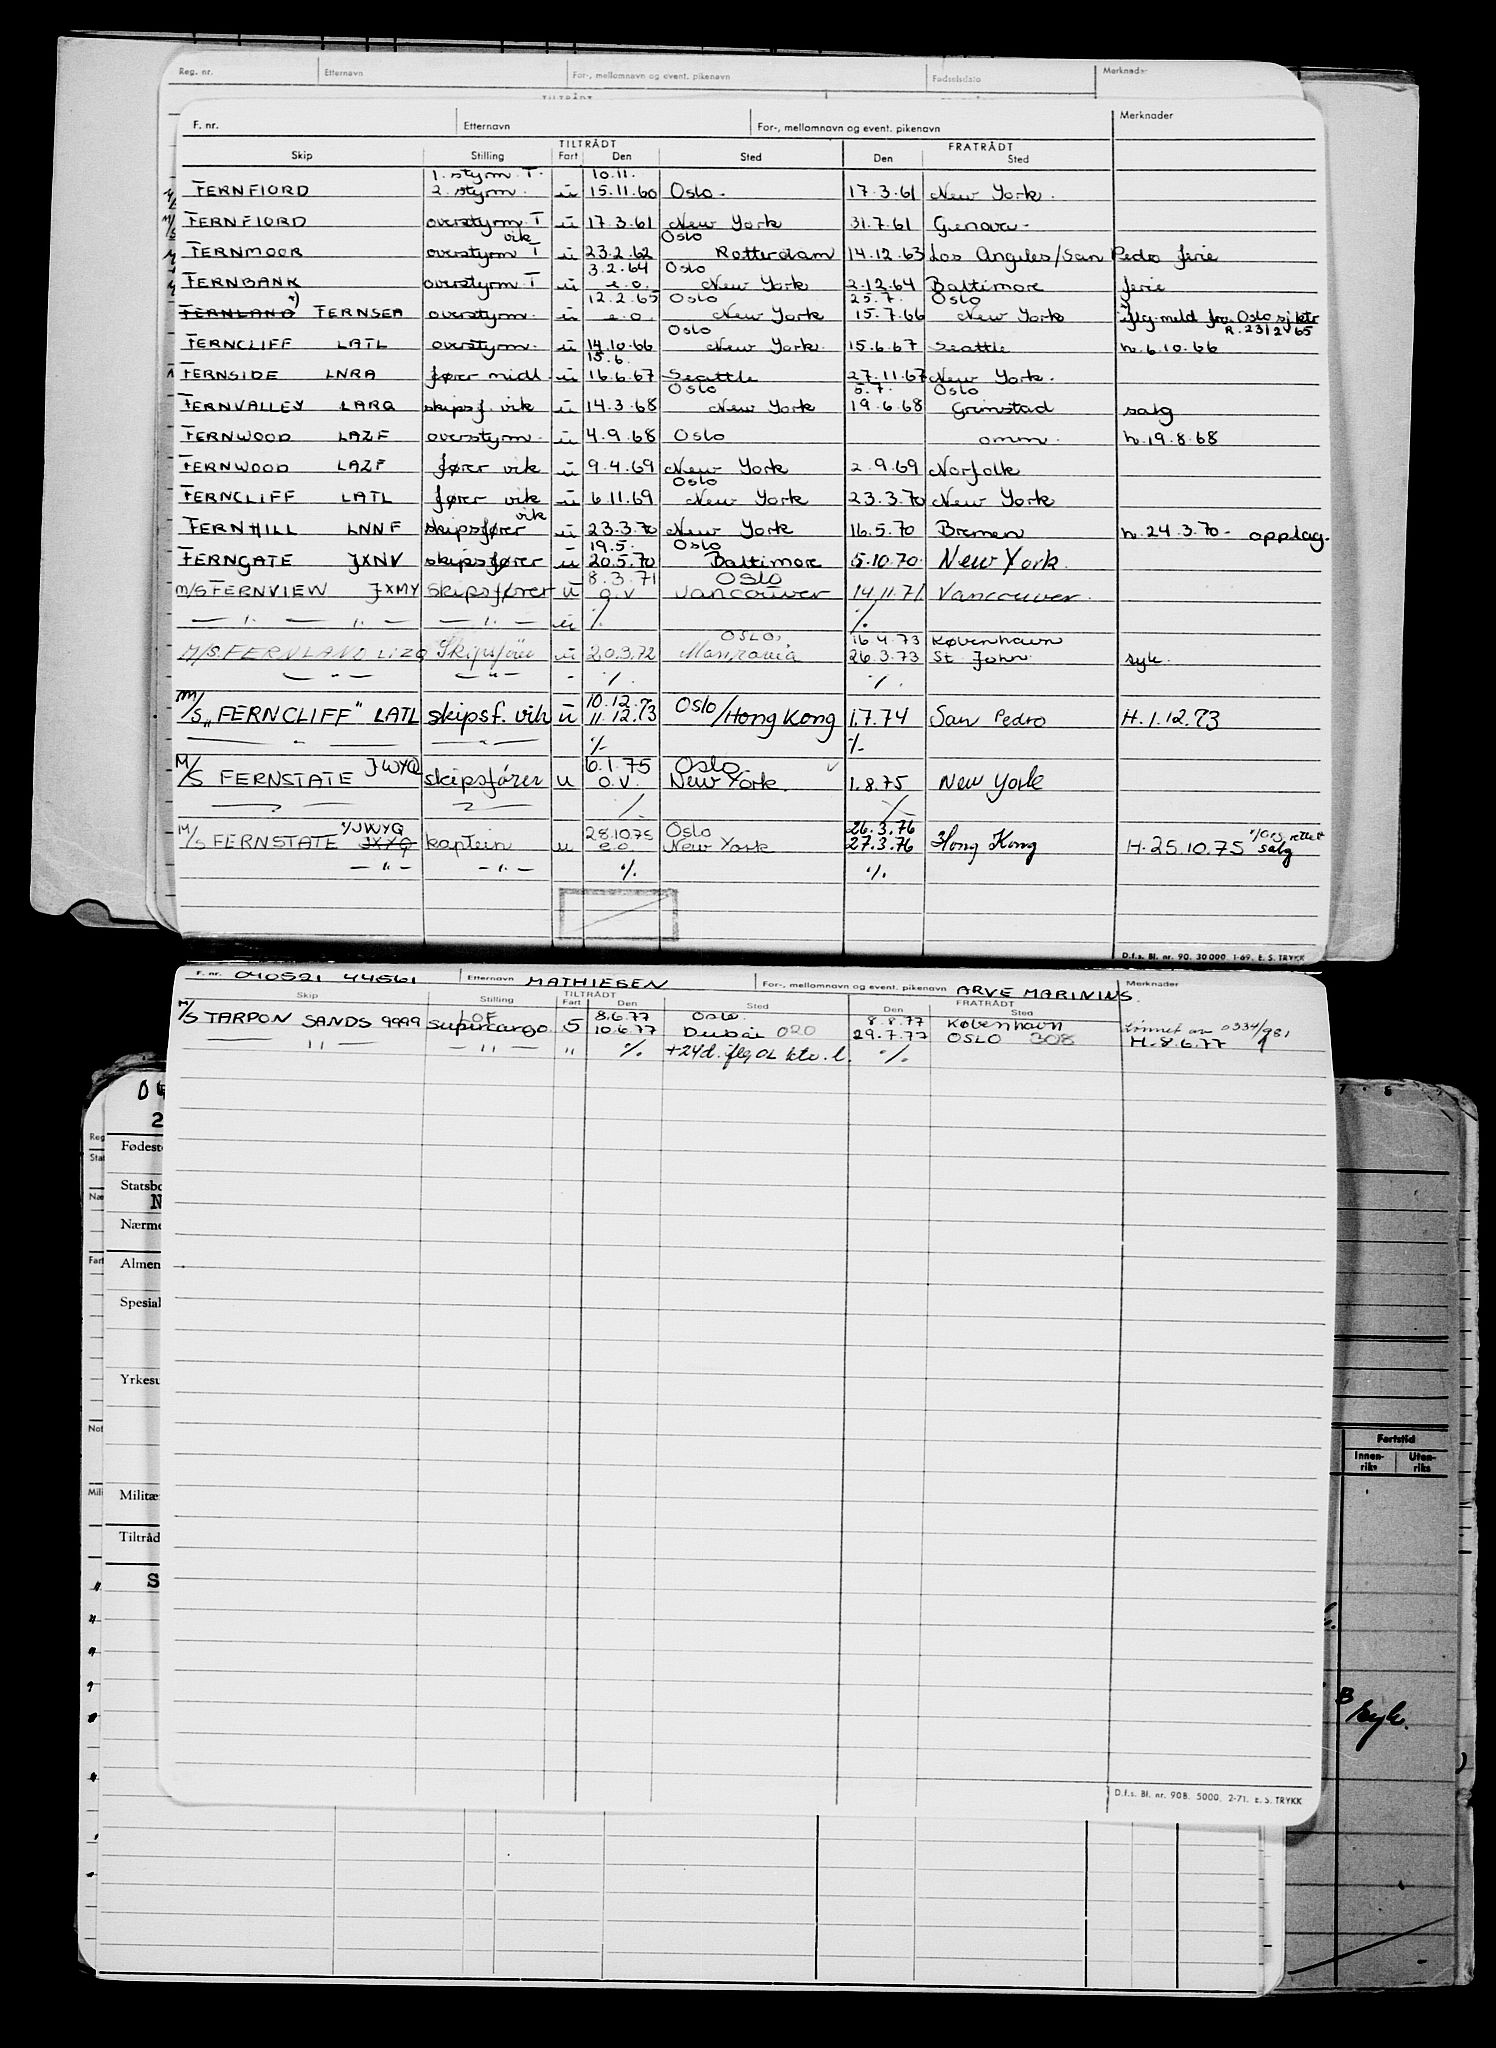 Reg. nr. Etternavn For-, mellomnavn og event. pikenavn Fødselsdato Merknader
F. nr. Etternavn For-, mellomnavn og event. pikenavn Merknader
TILTRÅDT FRATRÅDT
Skip Stilling Fart Den Sted Den Sted
1. styrm. T. 10.11.
FERNFIORD 2. styrm. u 15.11.60 Oslo. 17.3.61 New York.
FERNFIORD overstyrm. T u 17.3.61 New York 31.7.61 Genova.
vik Oslo
FERNMOOR overstyrm T u 23.2.62 Rotterdam 14.12.63 Los Angeles/San Pedro ferie
3.2.64 Oslo
FERNBANK overstyrm T u e.o. New York 2.12.64 Baltimore ferie
12.2.65 Oslo 25.7. Oslo
FERNLAND FERNSEA overstyrm. u e.o. New York 15.7.66 New York iflg. meld fra Oslo sj.ktr
Oslo R. 231265
FERNCLIFF LATL overstyrm. u 14.10.66 New York. 15.6.67 Seattle h. 6.10.66
15.6.
FERNSIDE LNRA fører midl u 16.6.67 Seattle 27.11.67 New York.
Oslo 5.7. Oslo
FERNVALLEY LARQ skipsf. vik u 14.3.68 New York 19.6.68 Grimstad salg
FERNWOOD LAZF overstyrm. u 4.9.68 Oslo omm. h. 19.8.68
FERNWOOD LAZF fører vik u 9.4.69 New York 2.9.69 Norfolk
Oslo
FERNCLIFF LATL fører vik u 6.11.69 New York 23.3.70 New York
vik
FERNHILL LNNF skipsfører u 23.3.70 New York 16.5.70 Bremen h. 24.3.70 - opplag.
19.5. Oslo
FERNGATE JXNV skipsfører u 20.5.70 Baltimore 5.10.70. New York.
8.3.71 OSLO
M/S FERNVIEW JXMY skipsfører u o.v vancouver 14.11.71 Vancouver.
— " — " — — " — u % %
OSLO, 16.4.73 København
M/S. FERNLAND LIZQ Skipsfører u 20.3.72 Monrovia 26.3.73 St. John syk.
— " — — " — - % %
10.12.73
M/S „FERNCLIFF" LATL skipsf. vik u 11.12.73 Oslo/Hong Kong 1.7.74 San Pedro H. 1.12.73
— " — — " — % %
JWYQ 6.1.75 Oslo
M/S FERNSTATE skipsfører u o.v. New York. 1.8.75 New York
— " — — " — % %
JWYQ 28.10.75 Oslo 26.3.76
M/S FERNSTATE JXYQ kaptein u e.o. New York 27.3.76 Hong Kong H. 25.10.75 salg
— " — — " — % %
D.f.s. Bl. nr. 90. 30 000. 1-69. E. S. TRYKK
F. nr. 040521 44561 Etternavn MATHIESEN For-, mellomnavn og event. pikenavn ARVE MARINIUS. Merknader
TILTRÅDT FRATRÅDT
Skip Stilling Fart Den Sted Den Sted
LOF 8.6.77 Oslo. 8.8.77 København
M/S TARPON SANDS 9999 supercargo 5 10.6.77 Dubai 020 29.7.77 OSLO 308 lønnet av 0334/981
— " — — " — " % +24d. iflg OL ktr. l. % H. 8.6.77
Fødeste
Statsbo
N
Nærme
Almen
Spesial
Yrkesu
Militæ
Tiltråd
S
Fartstid
Innen-riks Uten-riks
B
Syk.
D.f.s. Bl. nr. 90B. 5000. 2-71. E. S. TRYKK